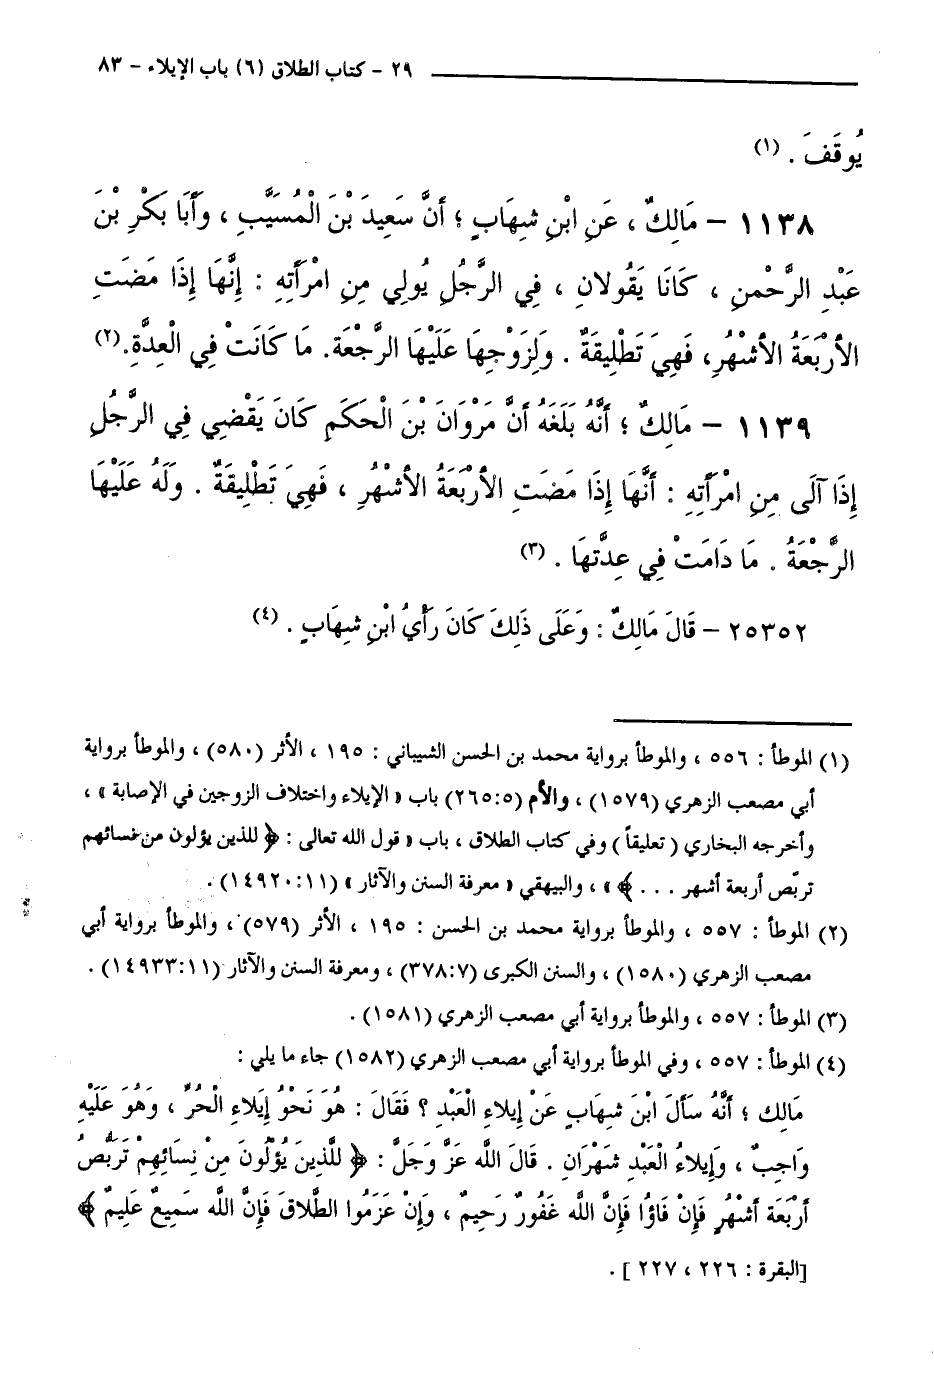 ٢٩ - كتاب الطلاق (٦) باب الإيلاء - ٨٣
يُوقَفَ . (١)
١١٣٨ - مَالِكٌ ، عَنِ ابْنِ شِهَابٍ ؛ أَنَّ سَعِيدَ بْنَ الْمُسَيَّبِ ، وَأَبَا بَكْرِ بْنَ
عَبْدِ الرَّحْمنِ ، كَانَا يَقُولانِ ، فِي الرَّجُلِ يُولِي مِنِ امْرَأَتِهِ : إِنَّهَا إِذَا مَضَتِ
الأَرْبَعَةُ الأَشْهُرِ، فَهِيَ تَطْلِيقَةٌ . وَلِزَوْجِهَا عَلَيْهَا الرَّجْعَة. مَا كَانَتْ فِي الْعِدَّةِ.(٢)
١١٣٩ - مَالِكٌ ؛ أَنَّهُ بَلَغَهُ أَنَّ مَرْوَانَ بْنَ الْحَكَمِ كَانَ يَقْضِي فِي الرَّجُلِ
إِذَا آلَى مِنِ امْرَأَتِهِ : أَنَّهَا إِذَا مَضَتِ الأَرْبَعَةُ الأَشْهُرِ ، فَهِيَ تَطْلِيقَةٌ . وَلَهُ عَلَيْهَا
الرَّجْعَةُ . مَا دَامَتْ فِي عِدَّتهَا . (٣)
٢٥٣٥٢ - قَالَ مَالِكٌ : وَعَلَى ذَلِكَ كَانَ رَأْيُ ابْنِ شِهَابٍ . (٤)
(١) الموطأ : ٥٥٦ ، والموطأ برواية محمد بن الحسن الشيباني : ١٩٥ ، الأثر (٥٨٠) ، والموطأ برواية
أبي مصعب الزهري (١٥٧٩) ، والأم (٢٦٥:٥) باب « الإيلاء واختلاف الزوجين في الإصابة » ،
وأخرجه البخاري ( تعليقاً ) وفي كتاب الطلاق ، باب « قول الله تعالى : ﴿ للذين يؤلون من نسائهم
تربّص أربعة أشهر . . . ﴾ » ، والبيهقي « معرفة السنن والآثار » (١٤٩٢٠:١١) .
(٢) الموطأ : ٥٥٧ ، والموطأ برواية محمد بن الحسن : ١٩٥ ، الأثر (٥٧٩) ، والموطأ برواية أبي
مصعب الزهري (١٥٨٠) ، والسنن الكبرى (٣٧٨:٧) ، ومعرفة السنن والآثار (١٤٩٣٣:١١) .
(٣) الموطأ : ٥٥٧ ، والموطأ برواية أبي مصعب الزهري (١٥٨١) .
(٤) الموطأ : ٥٥٧ ، وفي الموطأ برواية أبي مصعب الزهري (١٥٨٢) جاء ما يلي :
مَالِك ؛ أَنَّهُ سَأَلَ ابْنَ شِهَابٍ عَنْ إِيلاءِ الْعَبْدِ ؟ فَقَالَ : هُوَ نَحْوُ إِيلاءِ الْحُرِّ ، وَهُوَ عَلَيْهِ
وَاجِبٌ ، وَإِيلاءُ الْعَبْدِ شَهْرَانِ . قَالَ اللَّه عَزَّ وَجَلَّ : ﴿ لِلَّذِينَ يُؤْلُونَ مِنْ نِسَائِهِمْ تَرَبُّصُ
أَرْبَعَة أَشْهُرٍ فَإِنْ فَاؤُا فَإِنَّ اللَّه غَفُورٌ رَحِيمٌ ، وَإِنْ عَزَمُوا الطَّلاقَ فَإِنَّ اللَّه سَمِيعٌ عَلِيمٌ ﴾
[البقرة : ٢٢٦ ، ٢٢٧ ] .